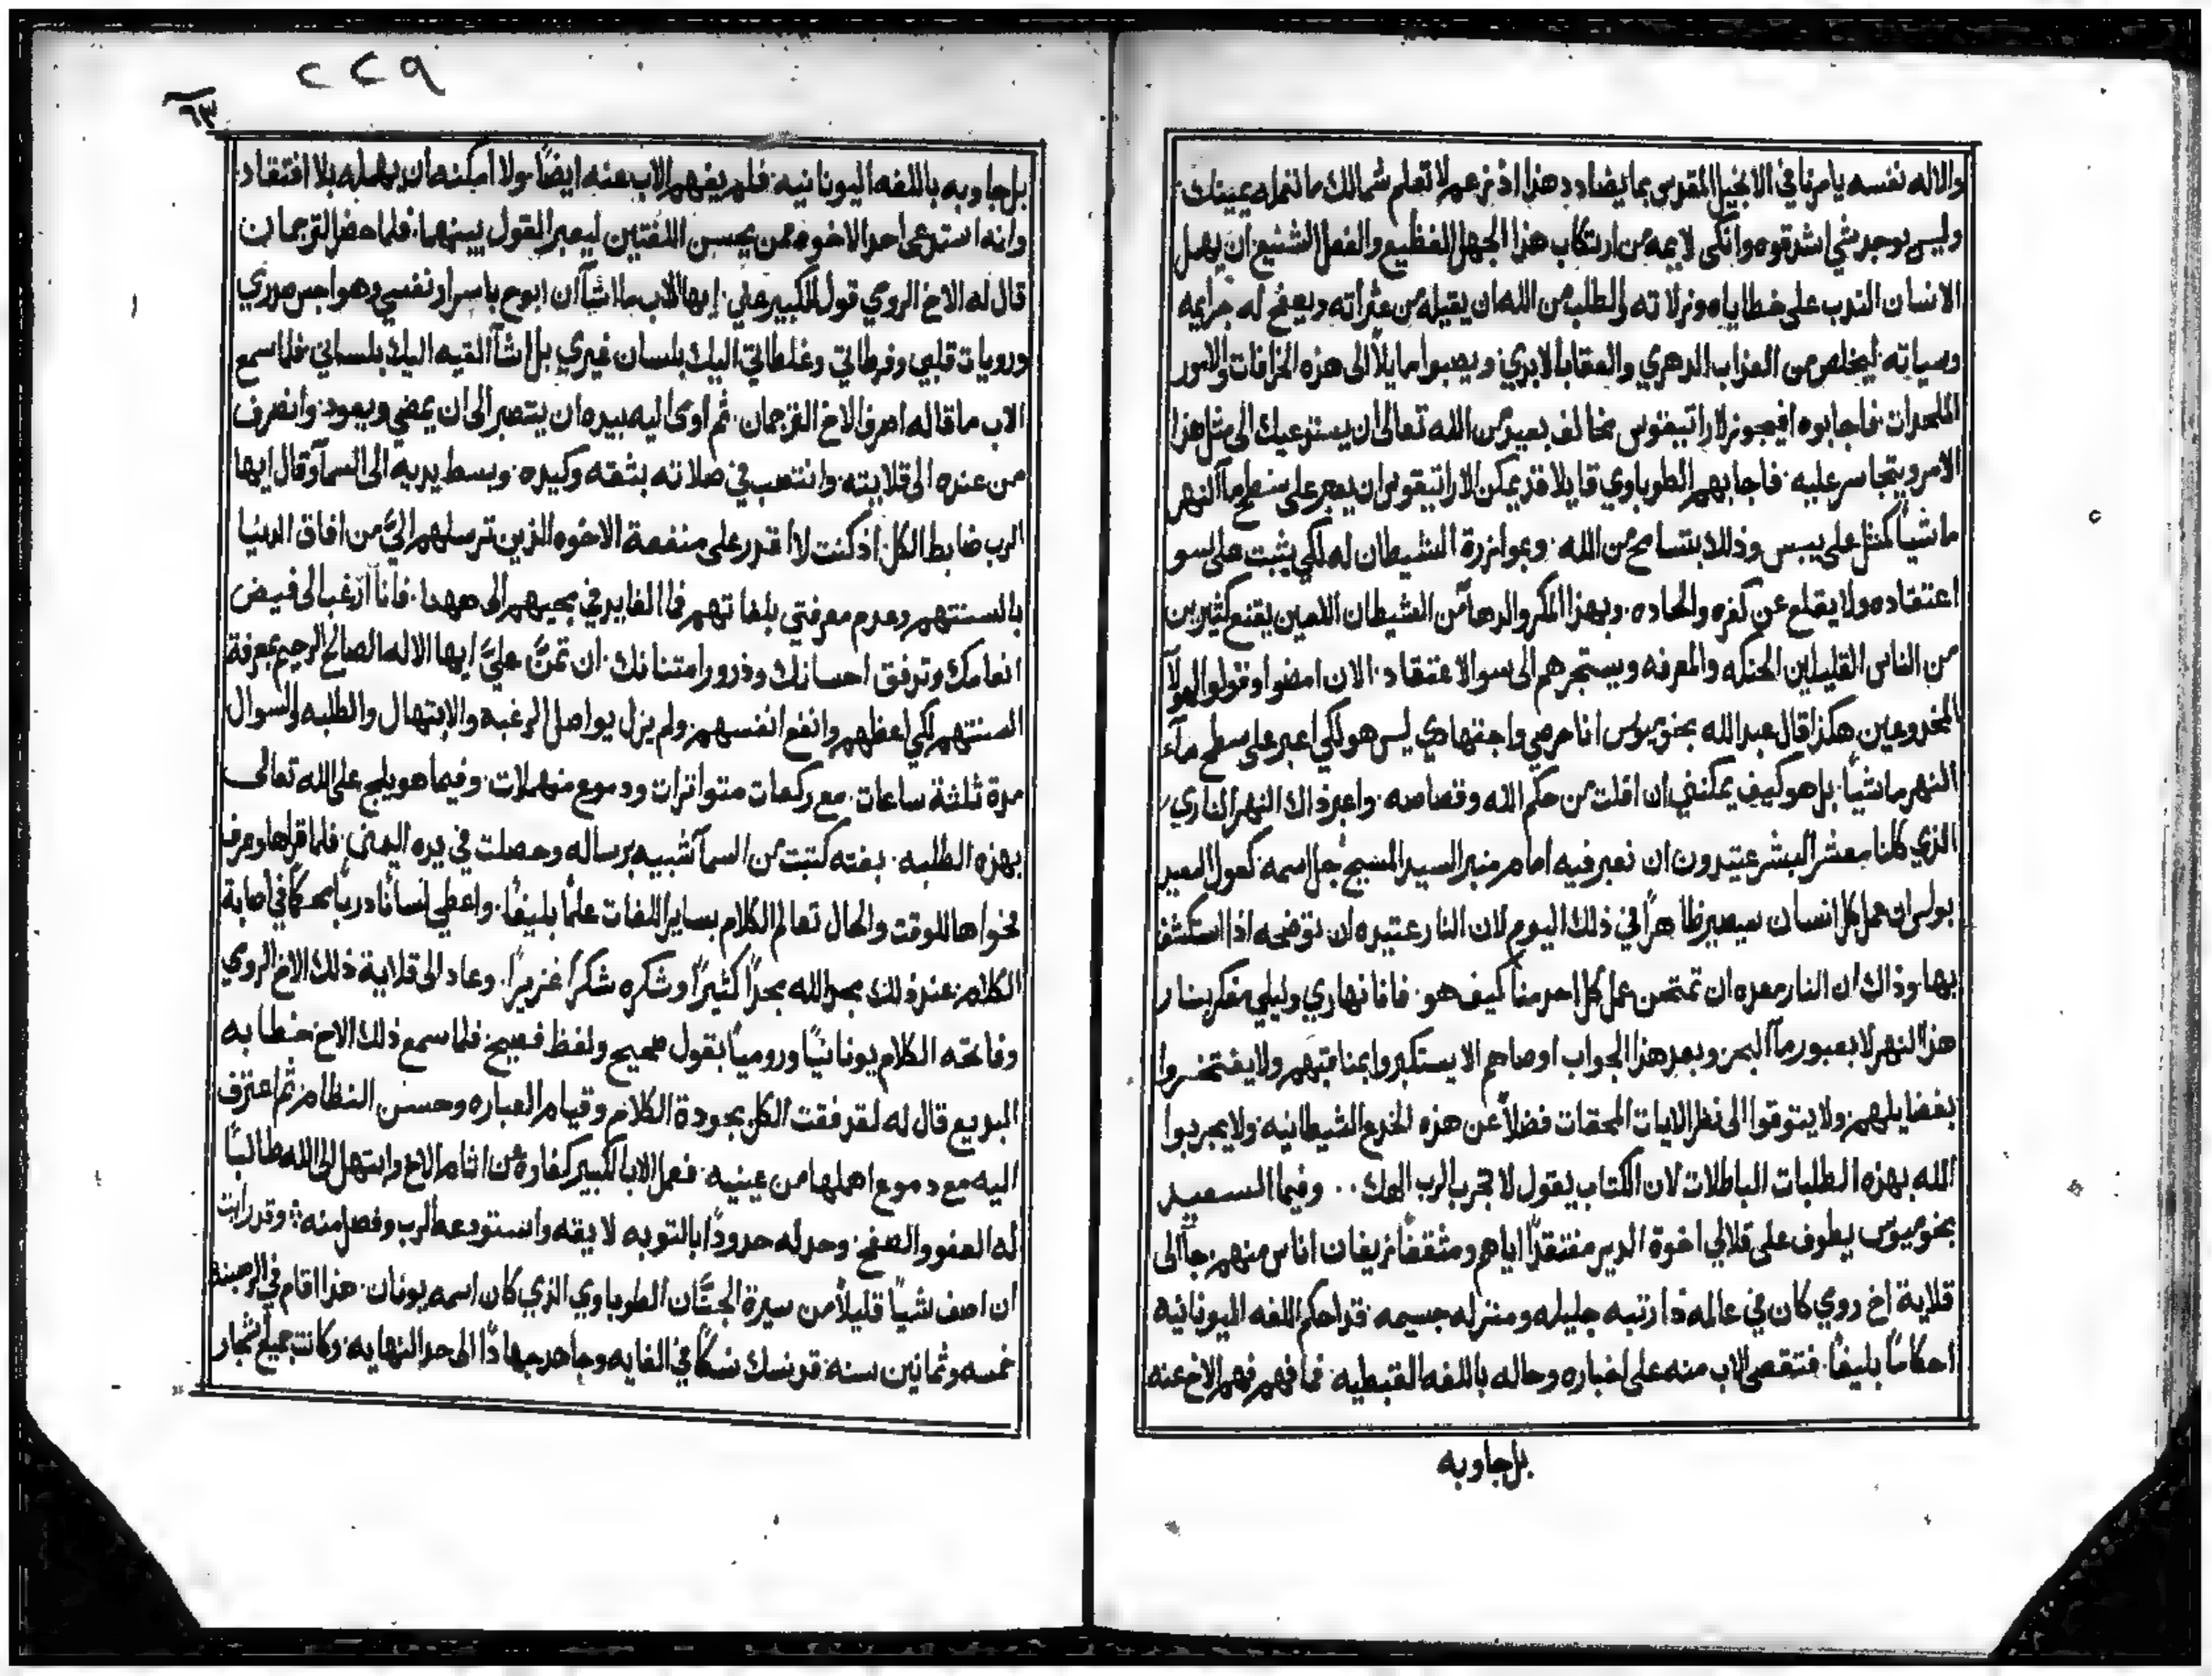 والاله نفسه يامرنا في الانجيل المقدس بما يضادد هذا اذ زعم لا تعلم شمالك ما تعمله يمينك
وليس يوجد شي اشد قوه وانكى لايمه من ارتكاب هذا الجهل الفظيع والفعل الشنيع ان يهمل
الانسان الندب على خطاياه وزلاته والطلب من الله ان يقيله من عثراته ويصفح له جرايمه
وسياته ليخلص من العذاب الدهري والعقاب الابدي ويصبوا مايلا الى هذه الخرافات والامور
الملحدات فاجابوه افيجوز لاراتيقوس مخالف بعيد من الله تعالى ان يستدعيك الى مثل هذا
الامر ويتجاسر عليه فاجابهم الطوباوي قايلا قد يمكن الاراتيقوس ان يعبر على سطح ماء النهر
ماشيا كمثل على يبس وذلك بتسامح من الله وبموازرة الشيطان له لكي يثبت على سو
اعتقاده ولا يقلع عن كفره والحاده وبهذا المكر والدهاء من الشيطان اللعين يقنع كثيرين
من الناس القليلين الحنكه والمعرفه ويستجرهم الى سوالاعتقاد الان امضوا وقولوا لهولآ
المخدوعين هكذا قال عبد الله بخوميوس انا حرصي واجتهادي ليس هو لكي اعبر على سطح مآء
النهر ماشيا بل هو كيف يمكنني ان افلت من حكم الله وقصاصه واعبر ذاك النهر الناري
الذي كلنا معشر البشر عتيدون ان نعبر فيه امام منبر السيد المسيح جل اسمه كقول السعيد
بولس ان عمل كل انسان سيصير ظاهرا في ذلك اليوم لان النار عتيده ان توضحه اذا استكشف
بها وذاك ان النار معده ان تمتحن عمل كل احد منا كيف هو فانا نهاري وليلي مفكر بنار
هذا النهر لا بعبور مآ البحر وبعد هذا الجواب اوصاهم الا يستكبروا بمناقبهم ولا يفتخروا
بفضايلهم ولا يتوقوا الى نظر الايات المحقات فضلا عن هذه الخدع الشيطانيه ولا يجربوا
الله بهذه الطلبات الباطلات لان الكتاب يقول لا تجرب الرب الهك وفيما السعيد
بخوميوس يطوف على قلالي اخوة الدير مفتقدا اياهم ومثقفا زيفان اناس منهم جآ الى
قلاية اخ رومي كان في عالمه ذا رتبه جليله ومنزله جسيمه قد احكم اللغه اليونانيه
احكاما بليغا فتقصى الاب منه على اخباره وحاله باللغه القبطيه فافهم فهم الاخ عنه
بل جاوبه
٢٢٩
٦٣
بل جاوبه باللغه اليونانيه فلم يفهم الاب عنه ايضا ولا امكنه ان يهمله بلا افتقاد
وانه استدعى احد الاخوه ممن يحسن اللغتين ليعبر القول بينهما فلما حضر الترجمان
قال له الاخ الرومي قول للكبير عني ايها الاب ما اشآ ان ابوح باسرار نفسي وهواجس صدري
ورويات قلبي وفرطاتي وغلطاتي اليك بلسان غيري بل اشآ القيه اليك بلساني فلما سمع
الاب ما قاله اصرف الاخ الترجمان ثم اومى اليه بيده ان يتصبر الى ان يمضي ويعود وانصرف
من عنده الى قلايته وانتصب في صلاته بثقه وكيده وبسط يديه الى السمآ وقال ايها
الرب ضابط الكل اذ كنت لا اقدر على منفعة الاخوه الذين ترسلهم الي من افاق الدنيا
بالسنتهم وعدم معرفتي بلغاتهم فما الفايده في مجيهم الى ههنا فانا ارغب الى فيض
انعامك وتدفق احسانك وذرور امتنانك ان تمن علي ايها الاله الصالح الرحيم بمعرفة
السنتهم لكي اعظهم وانفع انفسهم ولم يزل يواصل الرغبه والابتهال والطلبه والسوال
مدة ثلثة ساعات مع ركعات متواترات ودموع منهملات وفيما هو يلج على الله تعالى
بهذه الطلبه بغته كتبت من السمآ شبيه برساله وحصلت في يده اليمنى فلما قراها وعرف
فحواها للوقت والحال تعالم الكلام بساير اللغات علما بليغا واعطي لسانا دربا محكما في اصابة
الكلام عند ذلك مجد الله مجدا كثيرا وشكره شكرا غزيرا وعاد الى قلاية ذلك الاخ الرومي
وفاتحه الكلام يونانيا وروميا بقول صحيح ولفظ فصيح فلما سمع ذلك الاخ خطابه
البديع قال له لقد فقت الكل بجودة الكلام وقيام العباره وحسن النظام ثم اعترف
اليه مع دموع اهملها من عينيه فعمل الاب الكبير كفاره عن اثام الاخ وابتهل الى الله طالبا
له العفو والصفح وحد له حدودا بالتوبه لايقه واستودعه الرب وفصل منه وقد رايت
ان اصف شيا قليلا من سيرة الجنان الطوباوي الذي كان اسمه يونان هذا اقام في الرهبنه
خمسه وثمانين سنه قد نسك نسكا في الغايه وجاهد جهادا الى حد النهايه وكانت جميع ثمار